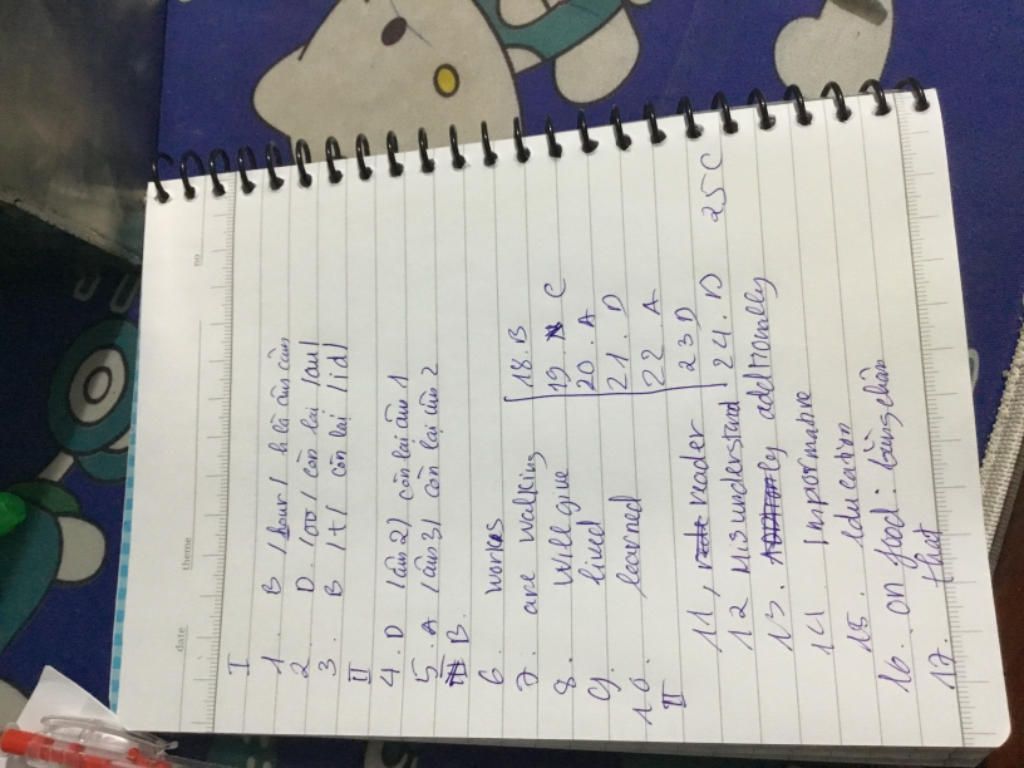 date theme no
I
1. B /hour/ h là âm câm
2. D. /oʊ/ còn lại /au/
3. B /t/ còn lại /id/
II
4. D /âm 2/ còn lại âm 1
5. A /âm 3/ còn lại âm 2
B.
6. works
7. are walking
8. will give
9. lived
10. learned
II
11, reader
12 Misunderstand
13. additionally
14 Informative
15. education
16. on food: bằng chân
17. that
18. B
19. C
20. A
21. D
22. A
23 D
24. D 25 C